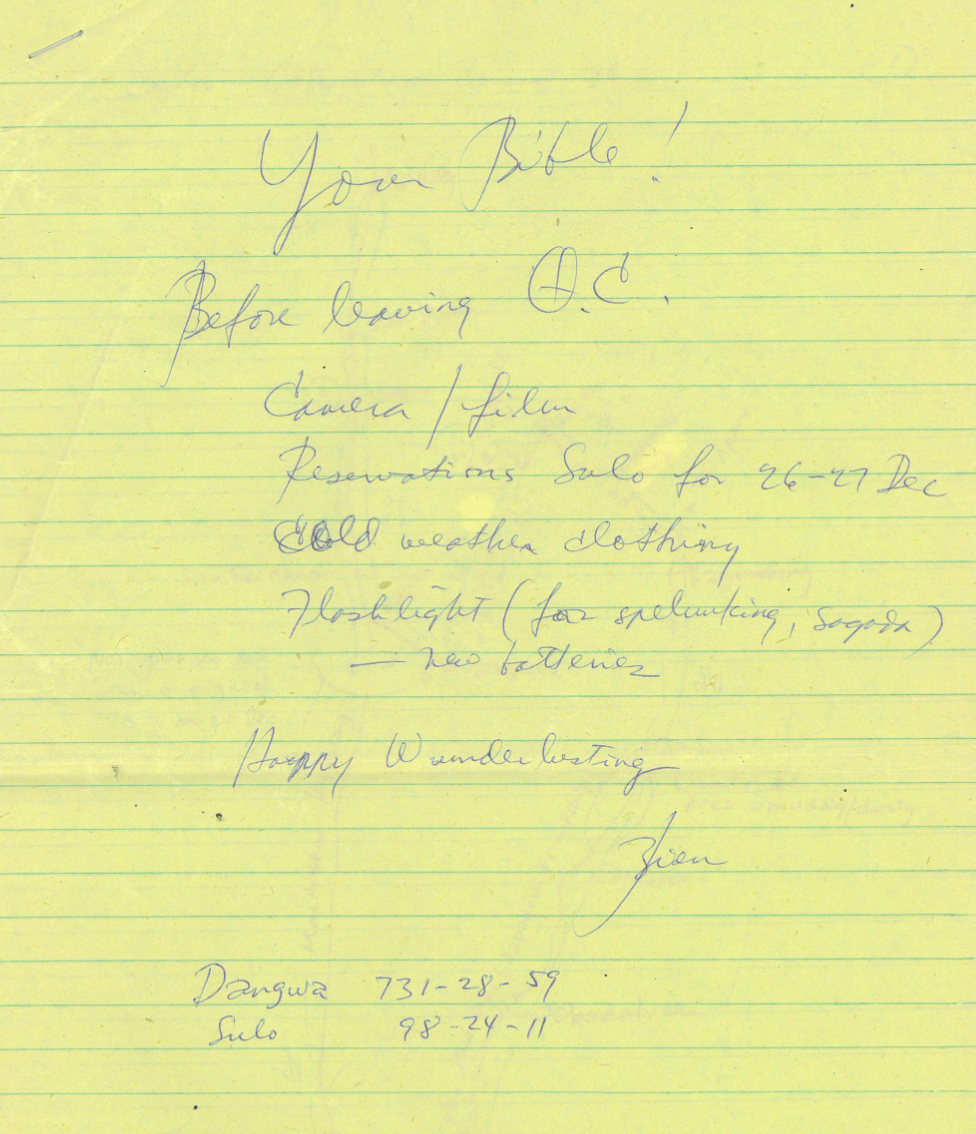 Your Bible!
Before leaving Q.C.
Camera / film
Reservations Sulo for 26-27 Dec
Cold weather clothing
Flashlight (for spelunking, Sagada)
— new batteries
Happy Wanderlusting
Dangwa 731-28-59
Sulo 98-24-11